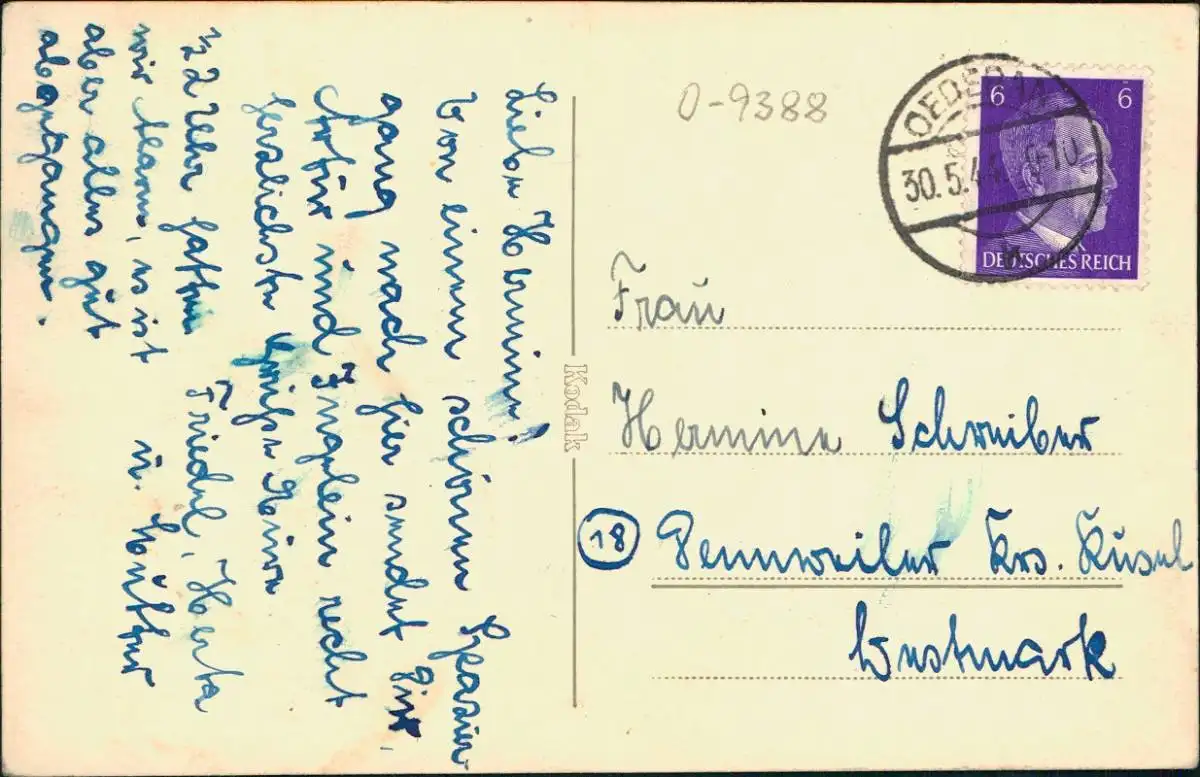 Liebe Hermine!
Von einem schönen Spazier-
gang nach hier sendet Dir,
Artür und Ingelein recht
herzlichste Grüße Deine
Friedel, Herta
u. Mutter
½2 Uhr hatten
wir Alarm, es ist
aber alles gut
abgegangen.
Kodak
O-9388
OEDERAN
30.5.44
6 6
DEUTSCHES REICH
Frau
Hermine Schreiber
18 Pennweiler Krs. Kusel
Westmark